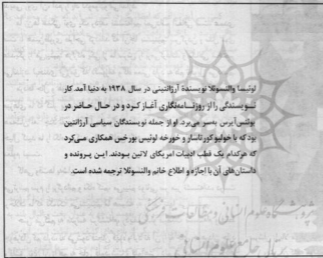 لوئیسا والنسوئلا نویسندهٔ آرژانتینی در سال ۱۹۳۸ به دنیا آمد. کار
نویسندگی را از روزنامه‌نگاری آغاز کرد و در حال حاضر در
بوئنس‌آیرس به‌سر می‌برد. او از جمله نویسندگان سیاسی آرژانتین
بود که با خولیو کورتاسار و خورخه لوئیس بورخس همکاری می‌کرد
که هرکدام یک قطب ادبیات امریکای لاتین بودند. این پرونده و
داستان‌های آن با اجازه و اطلاع خانم والنسوئلا ترجمه شده است.
پژوهشگاه علوم انسانی و مطالعات فرهنگی
پرتال جامع علوم انسانی